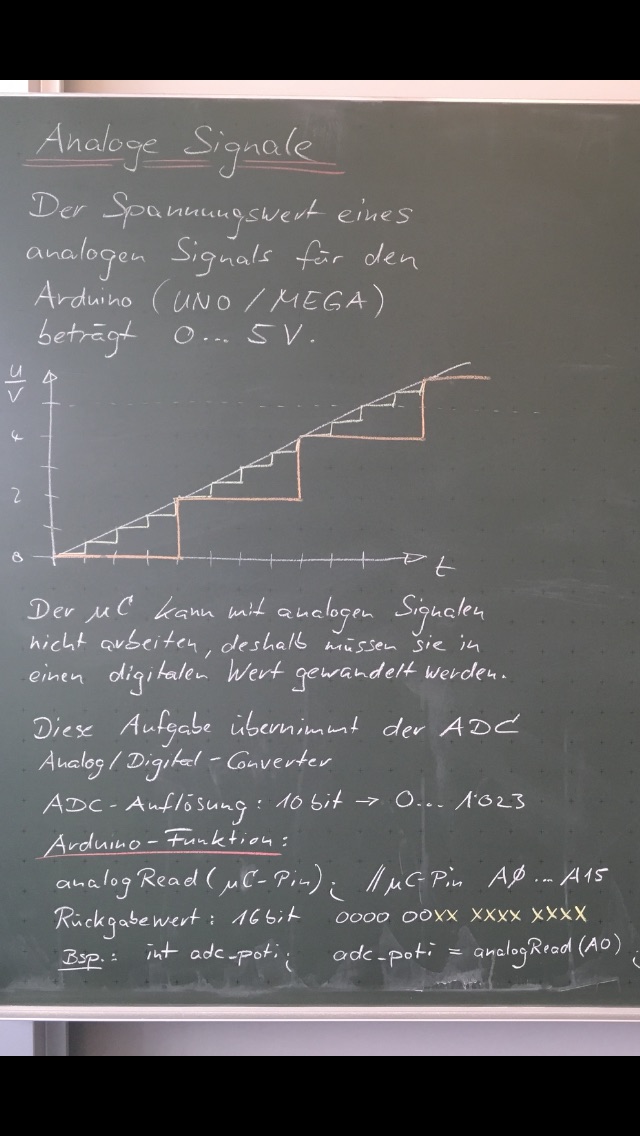 Analoge Signale
Der Spannungswert eines
analogen Signals für den
Arduino (UNO / MEGA)
beträgt 0... 5 V.
U/V
4
2
0
t
Der µC kann mit analogen Signalen
nicht arbeiten, deshalb müssen sie in
einen digitalen Wert gewandelt werden.
Diese Aufgabe übernimmt der ADC
Analog/Digital-Converter
ADC-Auflösung: 10 bit → 0... 1'023
Arduino-Funktion:
analogRead(µC-Pin); //µC-Pin AØ ... A15
Rückgabewert: 16 bit 0000 00xx xxxx xxxx
Bsp.: int adc_poti; adc_poti = analogRead(A0);